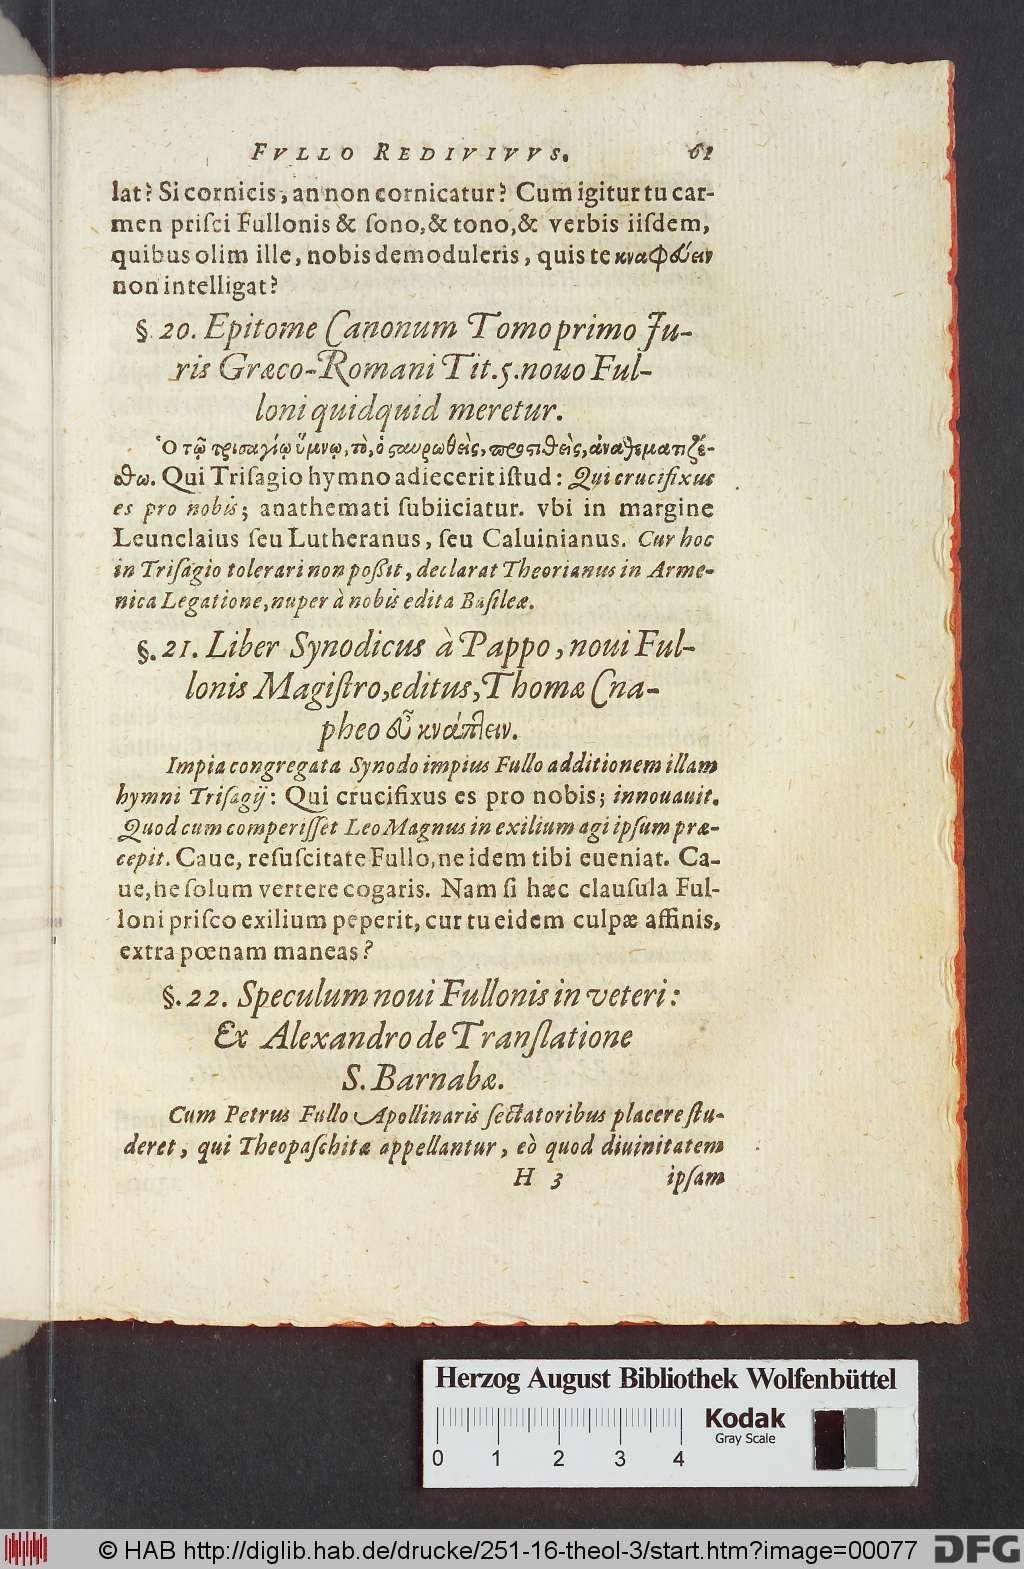 FVLLO REDIVIVVS. 61
lat? Si cornicis, an non cornicatur? Cum igitur tu car-
men prisci Fullonis & sono, & tono, & verbis iisdem,
quibus olim ille, nobis demoduleris, quis te κναφεύειν
non intelligat?
§. 20. Epitome Canonum Tomo primo Ju-
ris Græco-Romani Tit. 5. nouo Ful-
loni quidquid meretur.
Ὁ τῷ τρισαγίῳ ὕμνῳ, τὸ, ὁ σταυρωθεὶς, προστιθεὶς, ἀναθεματιζέ-
σθω. Qui Trisagio hymno adiecerit istud: Qui crucifixus
es pro nobis; anathemati subiiciatur. vbi in margine
Leunclaius seu Lutheranus, seu Caluinianus. Cur hoc
in Trisagio tolerari non poßit, declarat Theorianus in Arme-
nica Legatione, nuper à nobis edita Basileæ.
§. 21. Liber Synodicus à Pappo, noui Ful-
lonis Magistro, editus, Thomæ Cna-
pheo εὖ κνάπτειν.
Impia congregata Synodo impius Fullo additionem illam
hymni Trisagij: Qui crucifixus es pro nobis; innouauit.
Quod cum comperisset Leo Magnus in exilium agi ipsum præ-
cepit. Caue, resuscitate Fullo, ne idem tibi eueniat. Ca-
ue, ne solum vertere cogaris. Nam si hæc clausula Ful-
loni prisco exilium peperit, cur tu eidem culpæ affinis,
extra pœnam maneas?
§. 22. Speculum noui Fullonis in veteri:
Ex Alexandro de Translatione
S. Barnabæ.
Cum Petrus Fullo Apollinaris sectatoribus placere stu-
deret, qui Theopaschitæ appellantur, eò quod diuinitatem
H 3 ipsam
Herzog August Bibliothek Wolfenbüttel
Kodak
Gray Scale
0 1 2 3 4
© HAB http://diglib.hab.de/drucke/251-16-theol-3/start.htm?image=00077
DFG